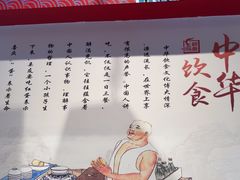 中华
饮食
中华饮食文化博大精深、
源远流长，在世界上享
有很高的声誉。中国人讲
吃，不仅仅是一日三餐，
解渴充饥，它往往蕴含着
中国人认识事物、理解事
物的哲理，一个小孩子生
下来，亲友要吃红蛋表示
喜庆。“蛋”表示着生命